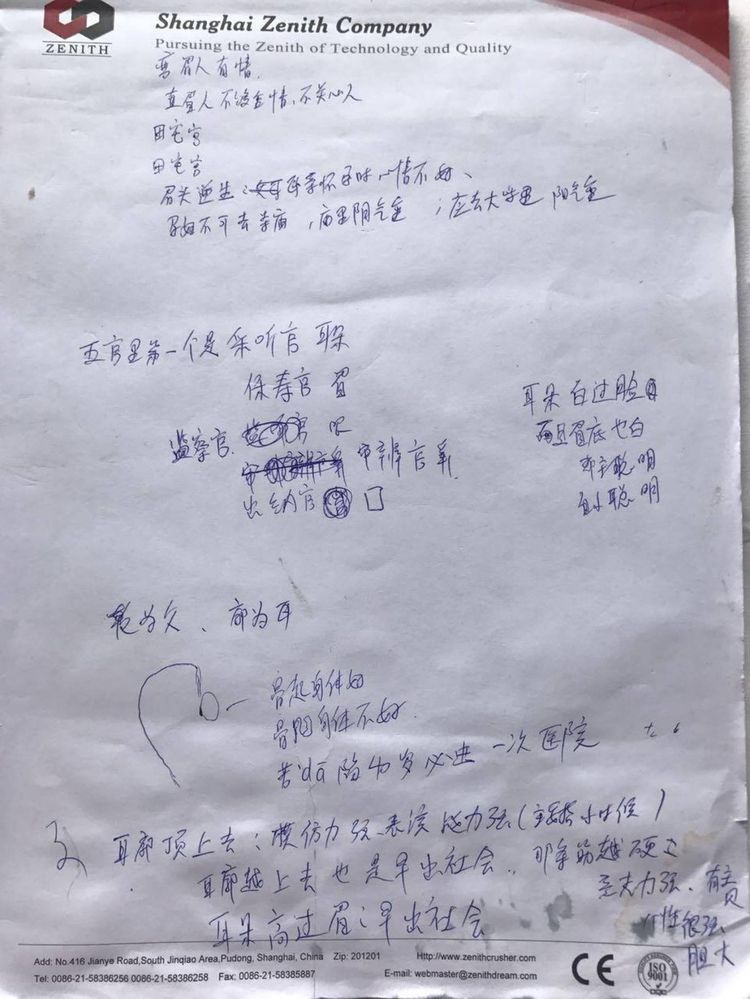 ZENITH
Shanghai Zenith Company
Pursuing the Zenith of Technology and Quality
弯眉人有情.
直眉人不注重情,不关心人
田宅宫
田宅宫
眉头逆生:母亲怀孕时心情不好、
孕妇不可去寺庙,庙里阴气重;应去大 阳气重
五官里第一个是采听官 耳朵
保寿官 眉
监察官 眼
审辨官 鼻
出纳官 口
耳朵白过脸
而且眉底也白
非常聪明
自小聪明
为父、廓为耳
骨起身体好
骨凹身体不好
若 陷 岁必进一次医院
耳廓顶上去:模仿力强、表演能力强(主要指小时候)
耳廓越上去也是早出社会.那条筋越硬
受夫力强、有责
个性很强
胆大
耳朵高过眉:早出社会
Add: No.416 Jianye Road,South Jinqiao Area,Pudong, Shanghai, China Zip: 201201 Http://www.zenithcrusher.com
Tel: 0086-21-58386256 0086-21-58386258 Fax: 0086-21-58385887 E-mail: webmaster@zenithdream.com
CE
ISO 9001